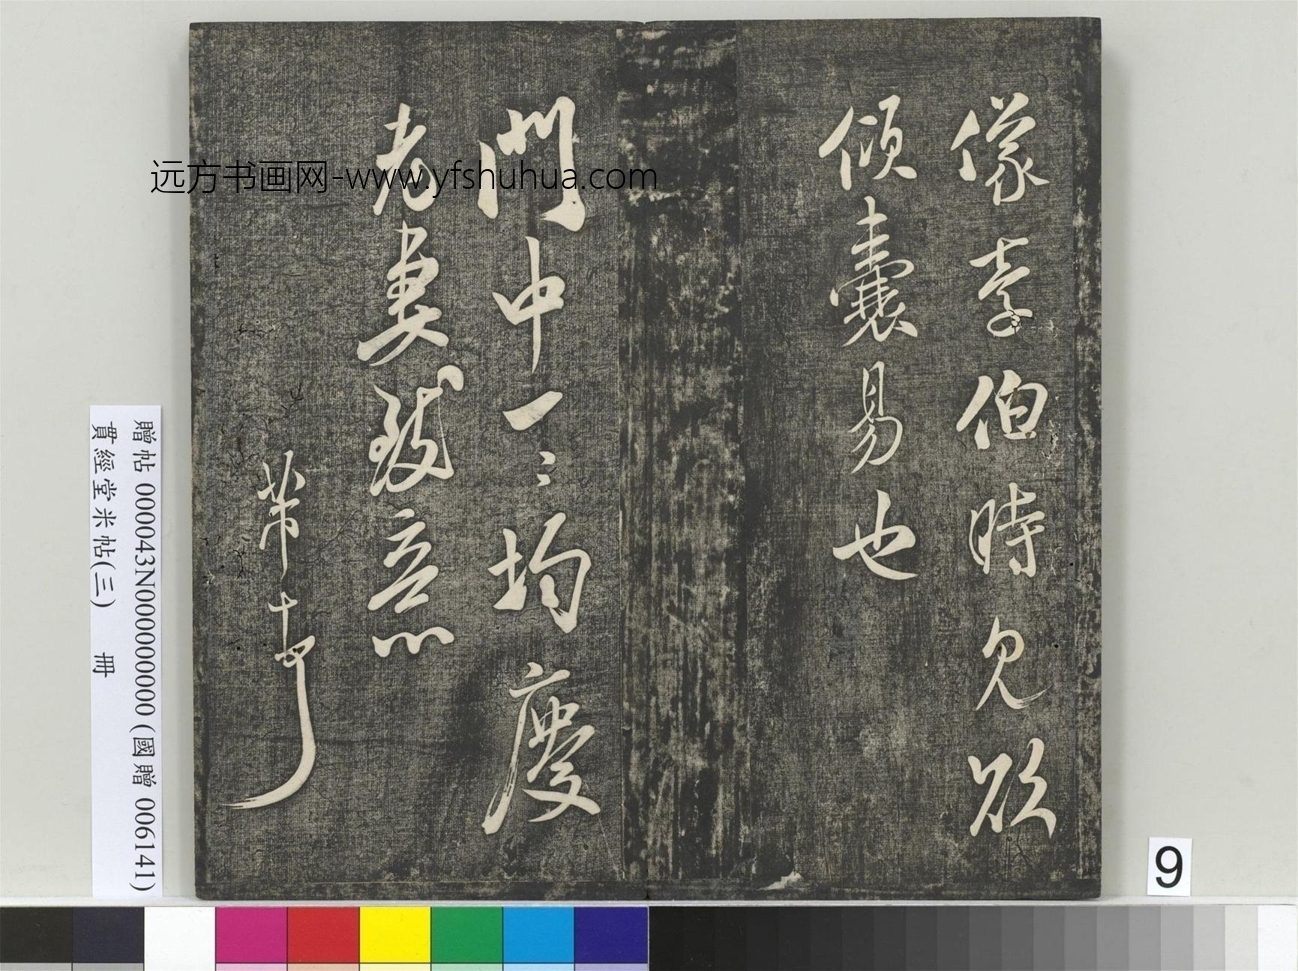 像李伯時見欲
傾囊易也
門中一一均慶
老妻致意
芾頓首
远方书画网-www.yfshuhua.com
贈帖 000043N000000000 (國贈 006141)
貫經堂米帖(三) 冊
9